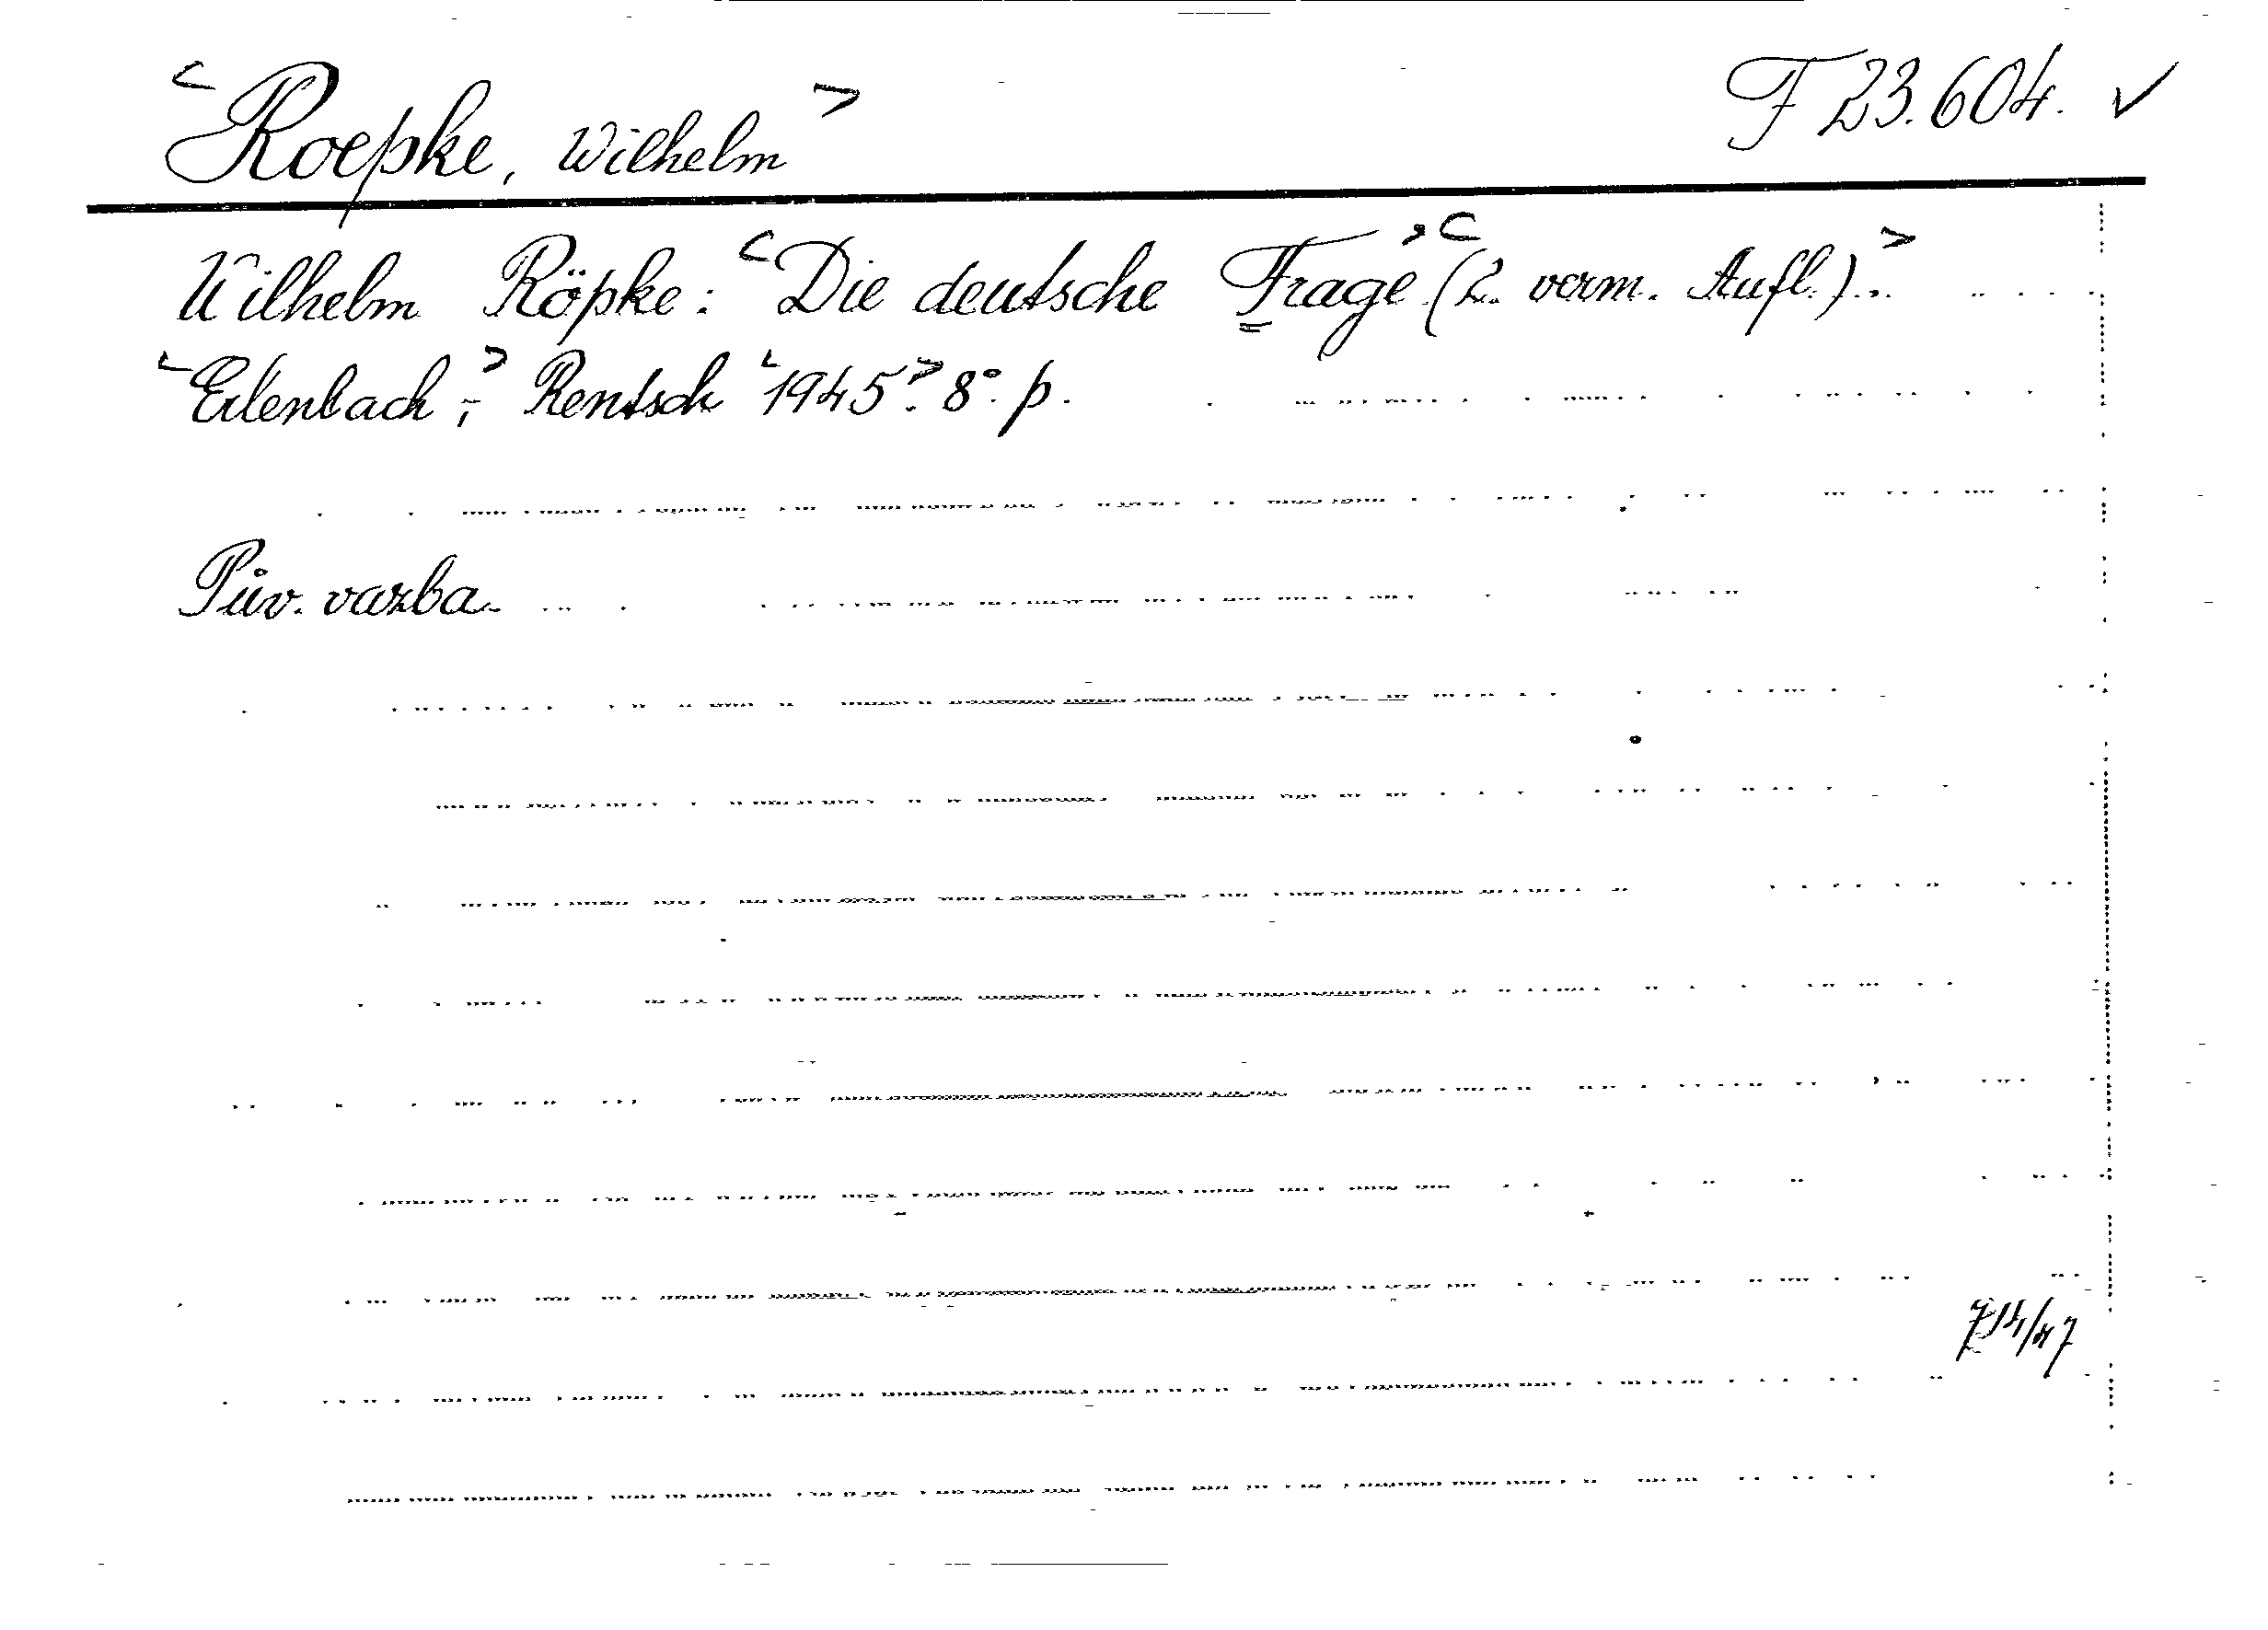 <Roepke, Wilhelm> F 23.604. ✓
Wilhelm Röpke: <Die deutsche Frage> <(2. verm. Aufl.).>
<Erlenbach,> - Rentsch <1945>. 8°. p.
Pův. vazba.